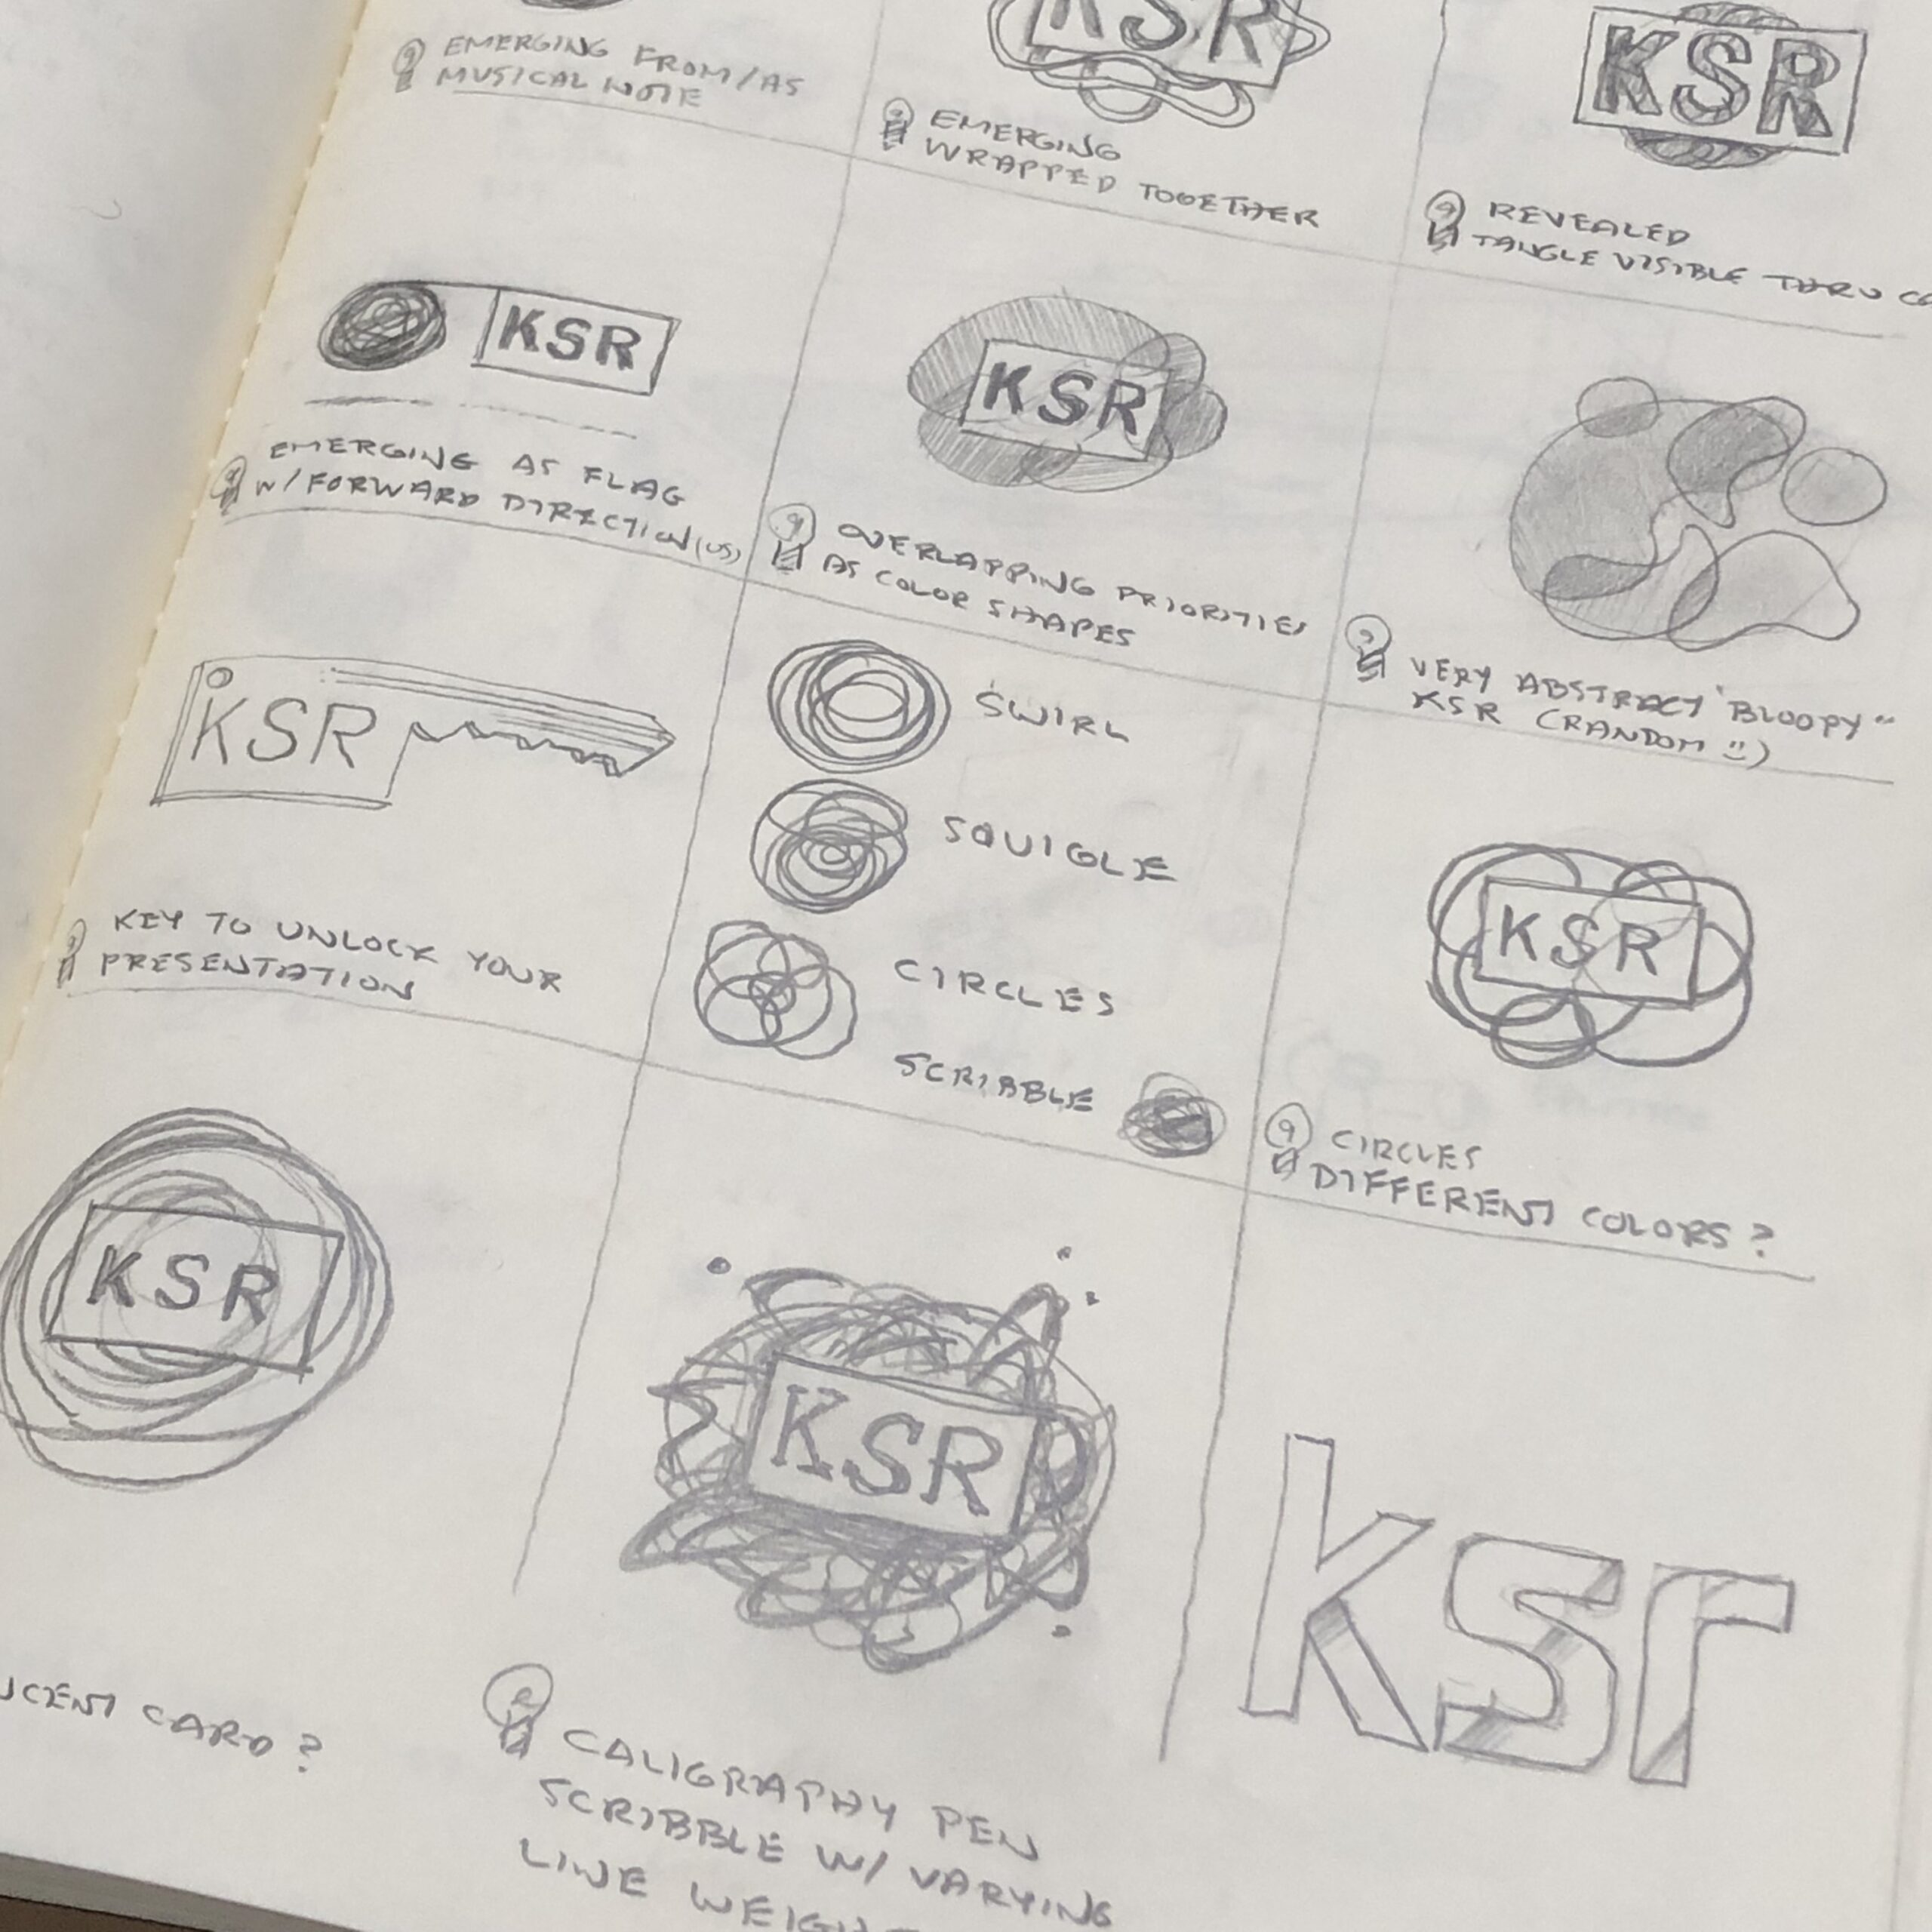 EMERGING FROM/AS
MUSICAL NOTE
KSR
EMERGING
WRAPPED TOGETHER
KSR
REVEALED
TANGLE VISIBLE THRU
KSR
EMERGING AS FLAG
W/FORWARD DIRECTION (US)
KSR
OVERLAPPING PRIORITIES
AS COLOR SHAPES
VERY ABSTRACT "BLOOPY"
KSR (RANDOM :)
KSR
KEY TO UNLOCK YOUR
PRESENTATION
SWIRL
SQUIGLE
CIRCLES
SCRIBBLE
KSR
CIRCLES
DIFFERENT COLORS?
KSR
CARD?
KSR
CALIGRAPHY PEN
SCRIBBLE W/ VARYING
LINE
Ksr